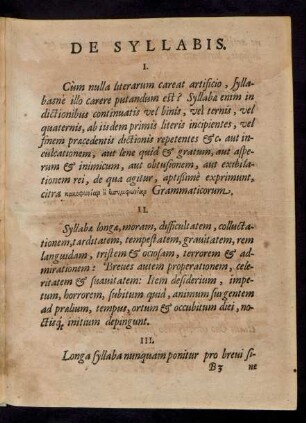 DE SYLLABIS.
I.
Cùm nulla literarum careat artificio, ſylla-
basne illo carere putandum eſt? Syllabæ enim in
dictionibus continuatis vel binis, vel ternis, vel
quaternis, ab iisdem primis literis incipientes, vel
finem præcedentis dictionis repetentes &c. aut in-
culcationem, aut lene quid & gratum, aut aſpe-
rum & inimicum, aut obtuſionem, aut exhila-
tionem rei, de qua agitur, aptiſſimè exprimunt,
citra Grammaticorum.
II.
Syllabæ longæ, moram, difficultatem, colluctа-
tionem, tarditatem, tempeſtatem, gravitatem, rem
languidam, triſtem & otioſam, terrorem & ad-
mirationem: Breves autem properationem, cele-
ritatem & ſuavitatem: Item deſiderium, impe-
tum, horrorem, ſubitum quid, animum ſurgentem
ad prælium, tempus, ortum & occubitum diei, no-
ctisq́; initium depingunt.
III.
Longa ſyllaba nunquam ponitur pro brevi ſi-
B3 ne